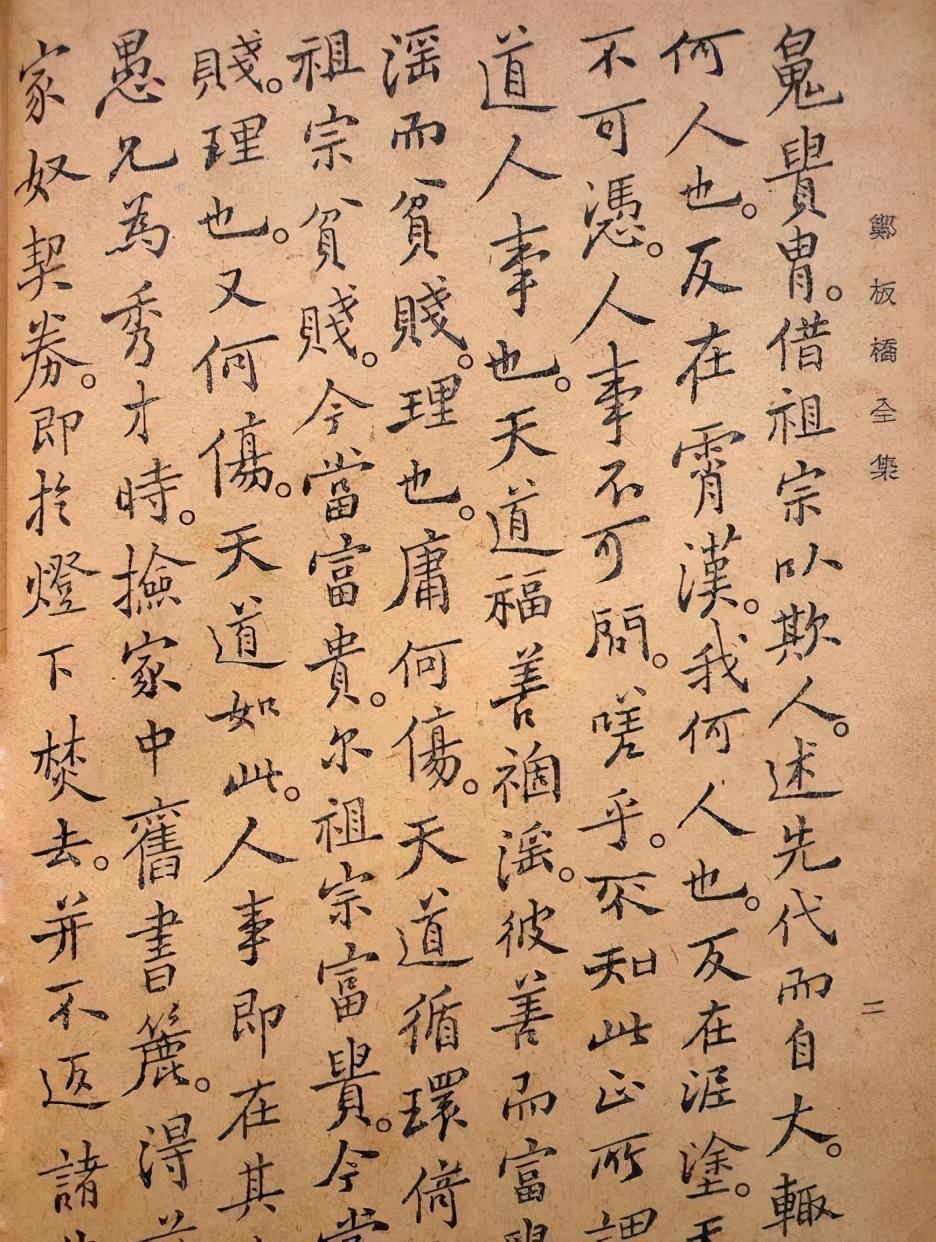 鄭板橋全集
二
㒵貴胄。借祖宗以欺人。述先代而自大。輙
何人也。反在霄漢。我何人也。反在泥塗。天
不可憑。人事不可問。嗟乎。不知此正所謂
道人事也。天道福善禍淫。彼善而富貴
淫而貧賤。理也。庸何傷。天道循環倚
祖宗貧賤。今當富貴。尔祖宗富貴。今當
賤。理也。又何傷。天道如此。人事即在其
愚兄為秀才時。撿家中舊書簏。得前
家奴契券。即於燈下焚去。并不返諸